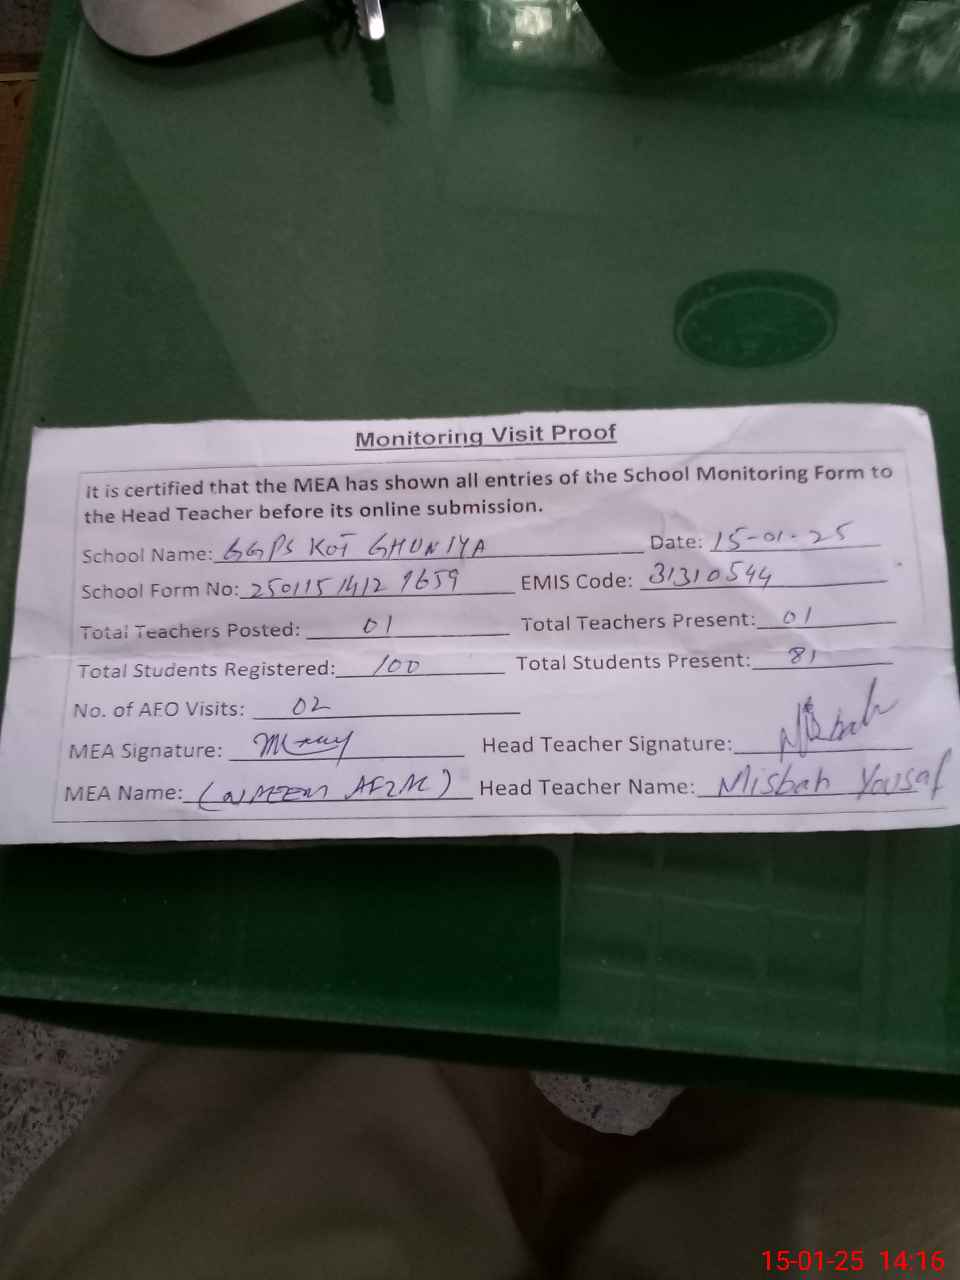 Monitoring Visit Proof
It is certified that the MEA has shown all entries of the School Monitoring Form to
the Head Teacher before its online submission.
School Name: GGPS KOT GHUNIYA Date: 15-01-25
School Form No: 250115 1412 9659 EMIS Code: 31310544
Total Teachers Posted: 01 Total Teachers Present: 01
Total Students Registered: 100 Total Students Present: 81
No. of AEO Visits: 02
MEA Signature: Head Teacher Signature: Misbah
MEA Name: (NAEEM AFZAL) Head Teacher Name: Misbah Yousaf
15-01-25 14:16